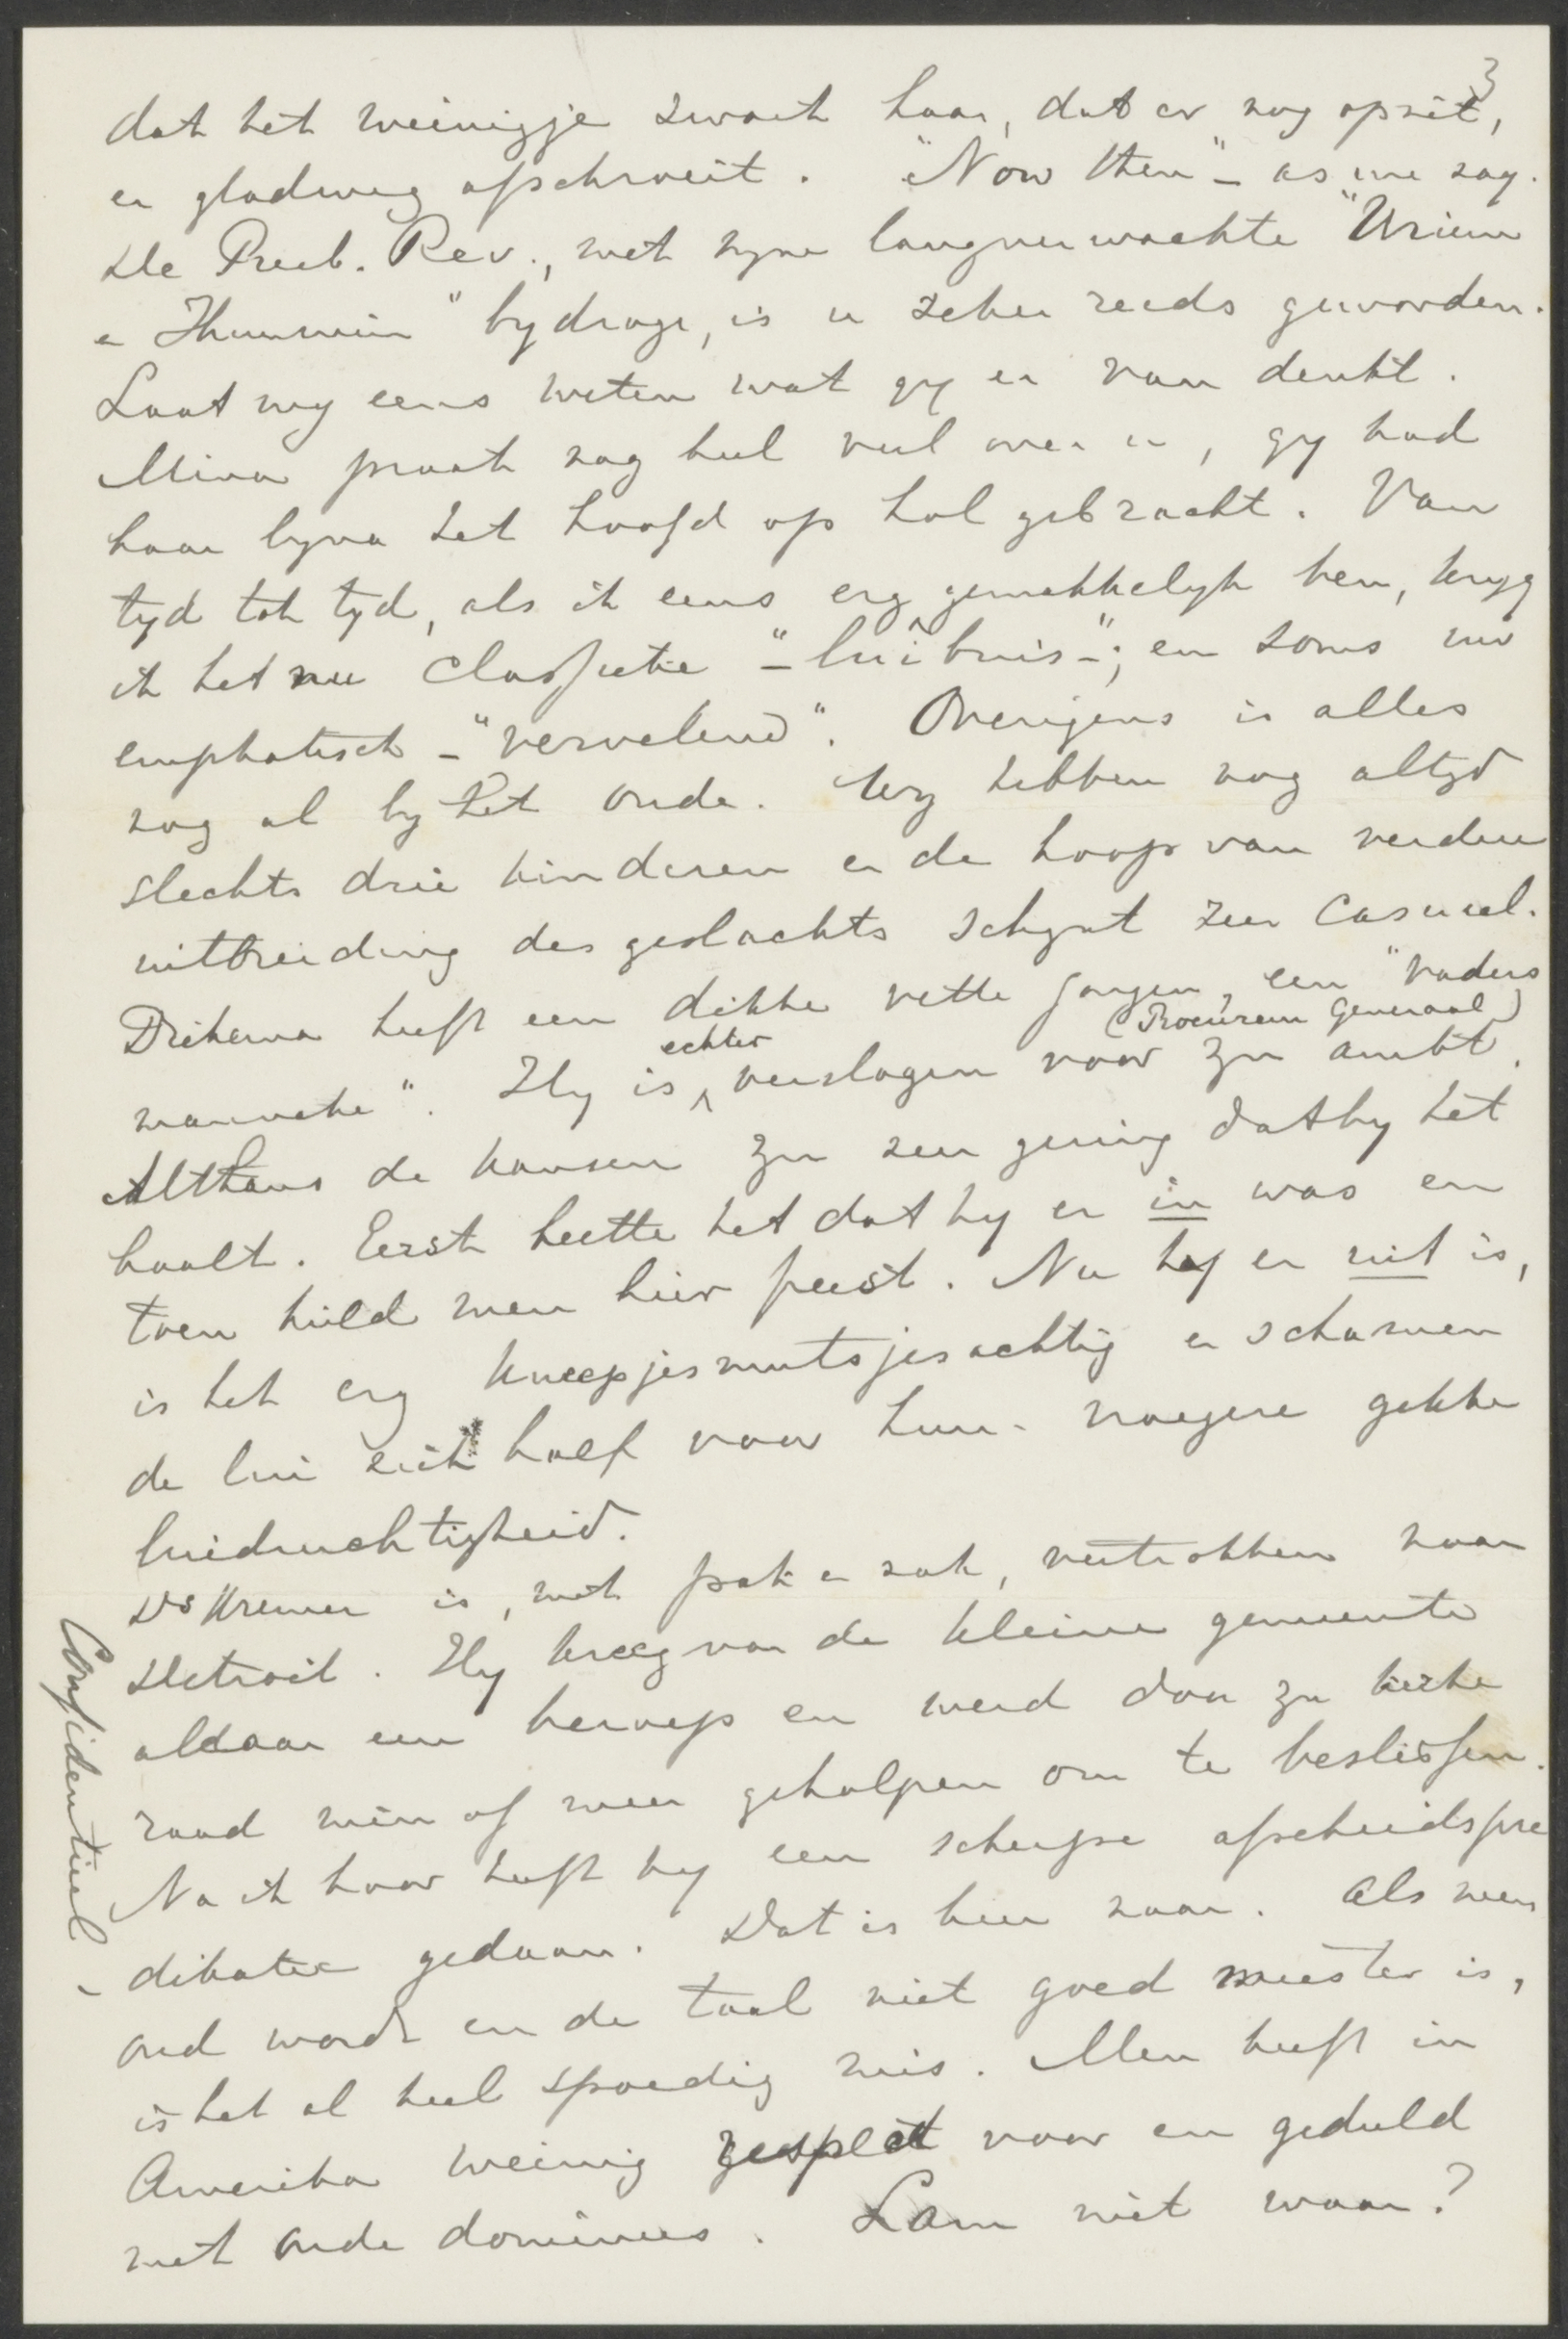 3
dat het weinigje zwart haar, dat er nog opzit,
er gladweg afschroeit. "Now then" – as we say.
De Presb. Rev., met zyne langverwachte "Uriem
en Thummim" bydrage, is u zeker reeds geworden.
Laat my eens weten wat gy er van denkt.
Mina praat nog heel veel over u, gy had
haar byna het hoofd op hol gebracht. Van
tyd tot tyd, als ik eens erg gemakkelyk ben, kryg
ik het nu classieke – "luibuis" –; en soms uw
emphatisch – "vervelend". Overigens is alles
nog al by het oude. Wy hebben nog altyd
slechts drie kinderen en de hoop van verdere
uitbreiding des geslachts schynt zeer casueel.
Diekema heeft een dikke vette jongen, een "vaders
manneke". Hy is echter verslagen voor zyn ambt (Procureur Generaal).
Althans de kansen zyn zeer gering dat hy het
haalt. Eerst heette het dat hy er in was en
toen hield men hier feest. Nu hy er uit is,
is het erg kneepjesmutsjesachtig en schamen
de lui zich half voor hun vroegere gekke
luidruchtigheid.
Ds Kremer is, met pak en zak, vertrokken naar
Detroit. Hy kreeg van de kleine gemeente
aldaar een beroep en werd door zyn kerke
raad min of meer geholpen om te beslissen.
Na ik hoor heeft hy een scherpe afscheidspre
dikatie gedaan. Dat is heer naar. Als men
oud wordt en de taal niet goed meester is,
is het al heel spoedig mis. Men heeft in
Amerika weinig respect voor en geduld
met oude dominees. Lam niet waar?
Confidentieel –